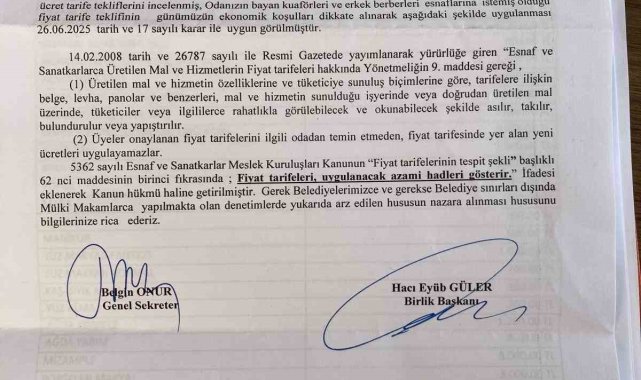 ücret tarife tekliflerini incelenmiş, Odanızın bayan kuaförleri ve erkek berberleri esnaflarına istemiş olduğu
fiyat tarife teklifinin günümüzün ekonomik koşulları dikkate alınarak aşağıdaki şekilde uygulanması
26.06.2025 tarih ve 17 sayılı karar ile uygun görülmüştür.
14.02.2008 tarih ve 26787 sayılı ile Resmi Gazetede yayımlanarak yürürlüğe giren "Esnaf ve
Sanatkarlarca Üretilen Mal ve Hizmetlerin Fiyat tarifeleri hakkında Yönetmeliğin 9. maddesi gereği ,
(1) Üretilen mal ve hizmetin özelliklerine ve tüketiciye sunuluş biçimlerine göre, tarifelere ilişkin
belge, levha, panolar ve benzerleri, mal ve hizmetin sunulduğu işyerinde veya doğrudan üretilen mal
üzerinde, tüketiciler veya ilgililerce rahatlıkla görülebilecek ve okunabilecek şekilde asılır, takılır,
bulundurulur veya yapıştırılır.
(2) Üyeler onaylanan fiyat tarifelerini ilgili odadan temin etmeden, fiyat tarifesinde yer alan yeni
ücretleri uygulayamazlar.
5362 sayılı Esnaf ve Sanatkarlar Meslek Kuruluşları Kanunun "Fiyat tarifelerinin tespit şekli" başlıklı
62 nci maddesinin birinci fıkrasında ; Fiyat tarifeleri, uygulanacak azami hadleri gösterir." İfadesi
eklenerek Kanun hükmü haline getirilmiştir. Gerek Belediyelerimizce ve gerekse Belediye sınırları dışında
Mülki Makamlarca yapılmakta olan denetimlerde yukarıda arz edilen hususun nazara alınması hususunu
bilgilerinize rica ederiz.
Belgin ONUR
Genel Sekreter
Hacı Eyüb GÜLER
Birlik Başkanı